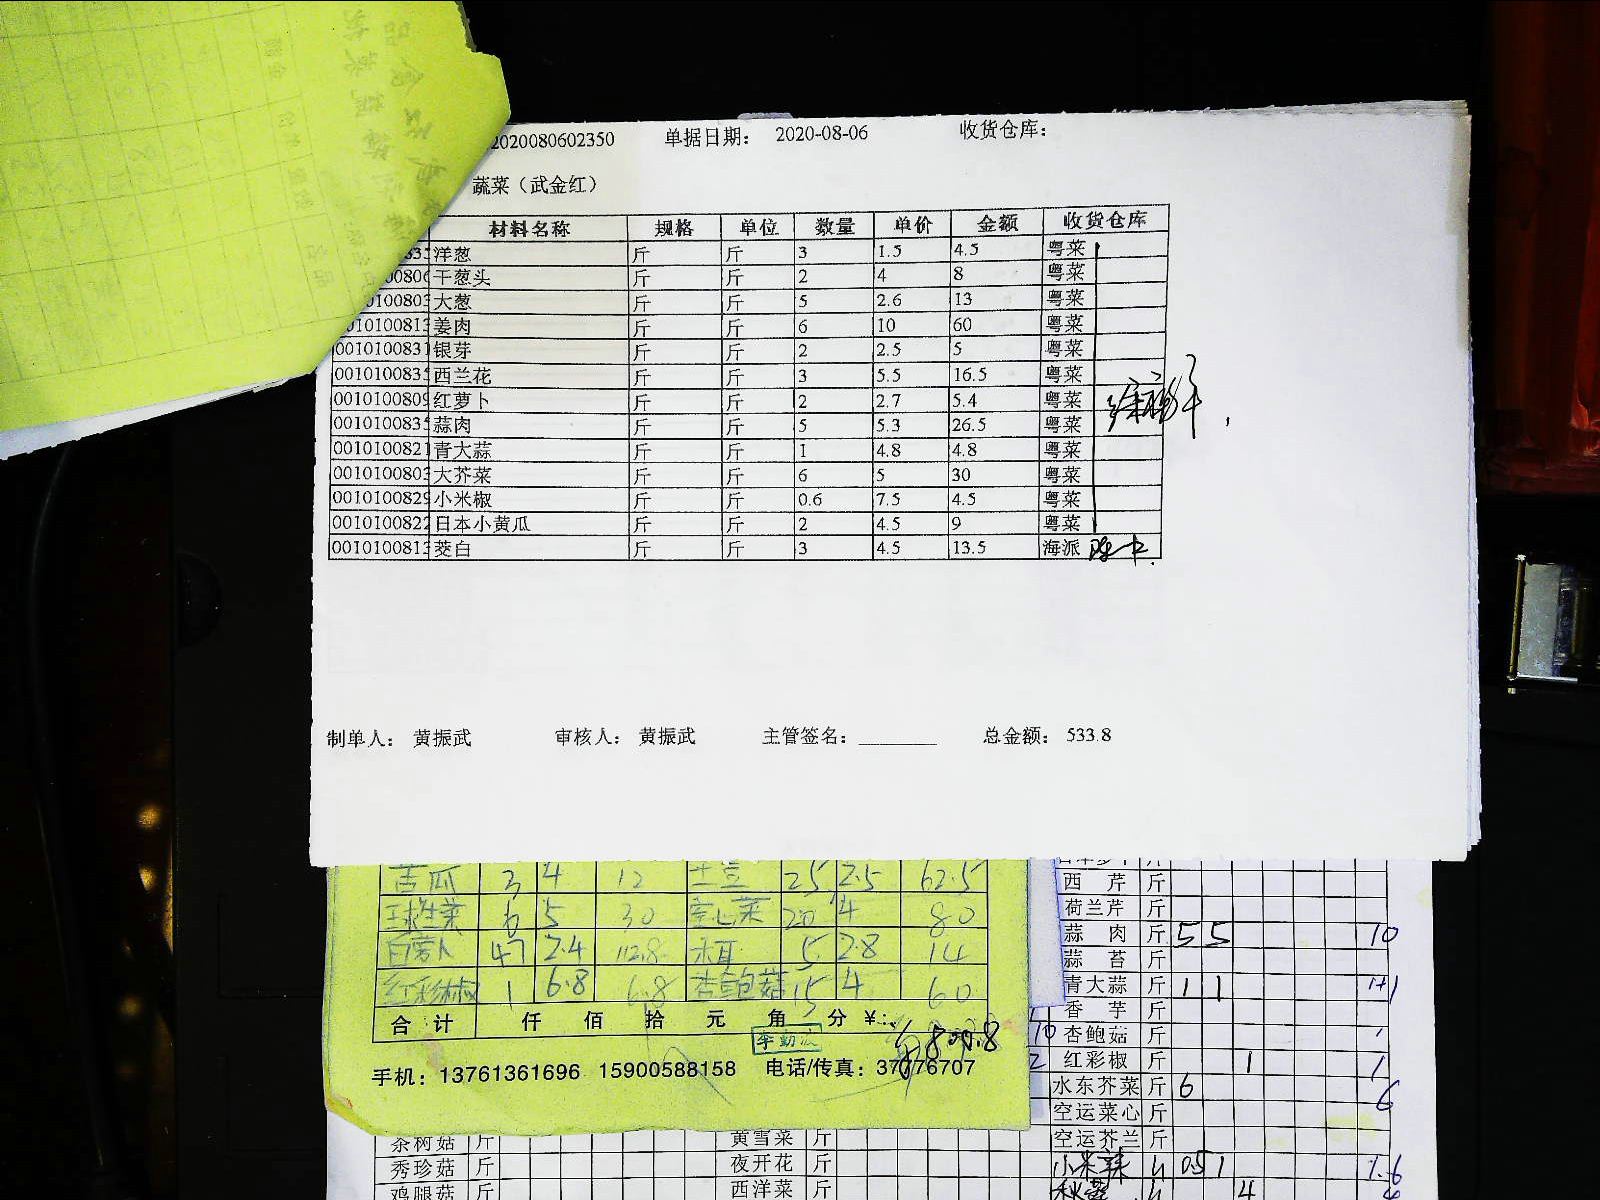 2020080602350 单据日期： 2020-08-06 收货仓库：
蔬菜（武金红）
材料名称 规格 单位 数量 单价 金额 收货仓库
洋葱 斤 斤 3 1.5 4.5 粤菜
干葱头 斤 斤 2 4 8 粤菜
大葱 斤 斤 5 2.6 13 粤菜
0010100813 姜肉 斤 斤 6 10 60 粤菜
0010100831 银芽 斤 斤 2 2.5 5 粤菜
0010100835 西兰花 斤 斤 3 5.5 16.5 粤菜
0010100809 红萝卜 斤 斤 2 2.7 5.4 粤菜
0010100835 蒜肉 斤 斤 5 5.3 26.5 粤菜
0010100821 青大蒜 斤 斤 1 4.8 4.8 粤菜
0010100803 大芥菜 斤 斤 6 5 30 粤菜
0010100829 小米椒 斤 斤 0.6 7.5 4.5 粤菜
0010100822 日本小黄瓜 斤 斤 2 4.5 9 粤菜
0010100813 茭白 斤 斤 3 4.5 13.5 海派
制单人： 黄振武 审核人： 黄振武 主管签名： 总金额： 533.8
苦瓜 3 4 12 土豆 25 2.5 62.5
球生菜 6 5 30 空心菜 20 4 80
白萝卜 47 2.4 112.8 木耳 5 2.8 14
红彩椒 1 6.8 6.8 杏鲍菇 15 4 60
合计 仟 佰 拾 元 角 分 ¥：
手机：13761361696 15900588158 电话/传真：37776707
西芹 斤
荷兰芹 斤
蒜肉 斤 5 5 10
蒜苔 斤
青大蒜 斤 1 1 1+1
香芋 斤
杏鲍菇 斤
红彩椒 斤 1 1
水东芥菜 斤 6 6
空运菜心 斤
空运芥兰 斤
小米辣 1.6
茶树菇 斤 黄雪菜 斤
秀珍菇 斤 夜开花 斤
鸡腿菇 斤 西洋菜 斤